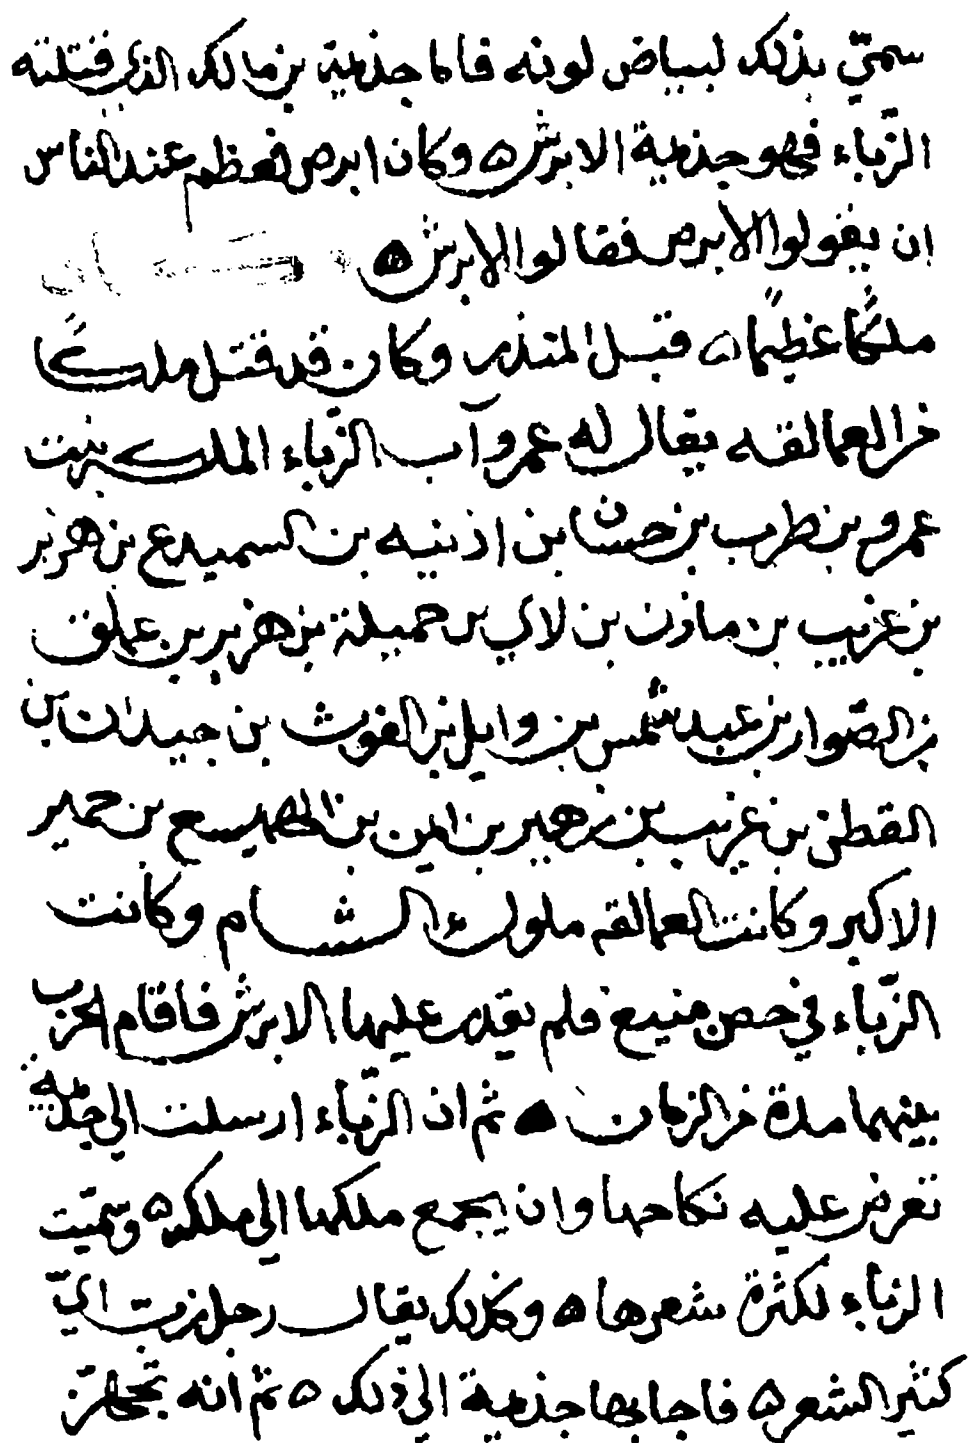 سميّ بذلك لبياض لونه فاما جذيمة بن مالك الذي قتلته
الزّباء فهو جذيمة الابرش ٥ وكان ابرص فعظم عند الناس
ان يقولوا الأبرص فقالوا الابرش ٥
ملكًا عظيمًا ٥ قبل المنذر وكان قد قتل ملكًا
من العمالقه يقال له عمرو آب الزّباء الملك بنت
عمرو بن ظرب بن حسان بن اذنيه بن السميدع بن هزبر
بن غريب بن مازن بن لاي بن حميلة بن هزبر بن عملق
بن الصّوار بن عبد شمس بن وايل بن الغوث بن جيدان بن
القطن بن غريب بن زهير بن ايمن بن الهميسع بن حمير
الاكبر وكانت العمالقه ملوك الشام وكانت
الزّباء في حصن منيع فلم يقدر عليها الابرش فاقام الحرب
بينهما مدة من الزمان ٥ ثم ان الزّباء ارسلت الى جذيمة
تعرض عليه نكاحها وان يجمع ملكها الى ملكه ٥ وسمّيت
الزباء لكثرة شعرها ٥ وكذلك يقال رجل ازبّ ايّ
كثير الشعر ٥ فاجابها جذيمة الى ذلك ٥ ثم انه تجهّز